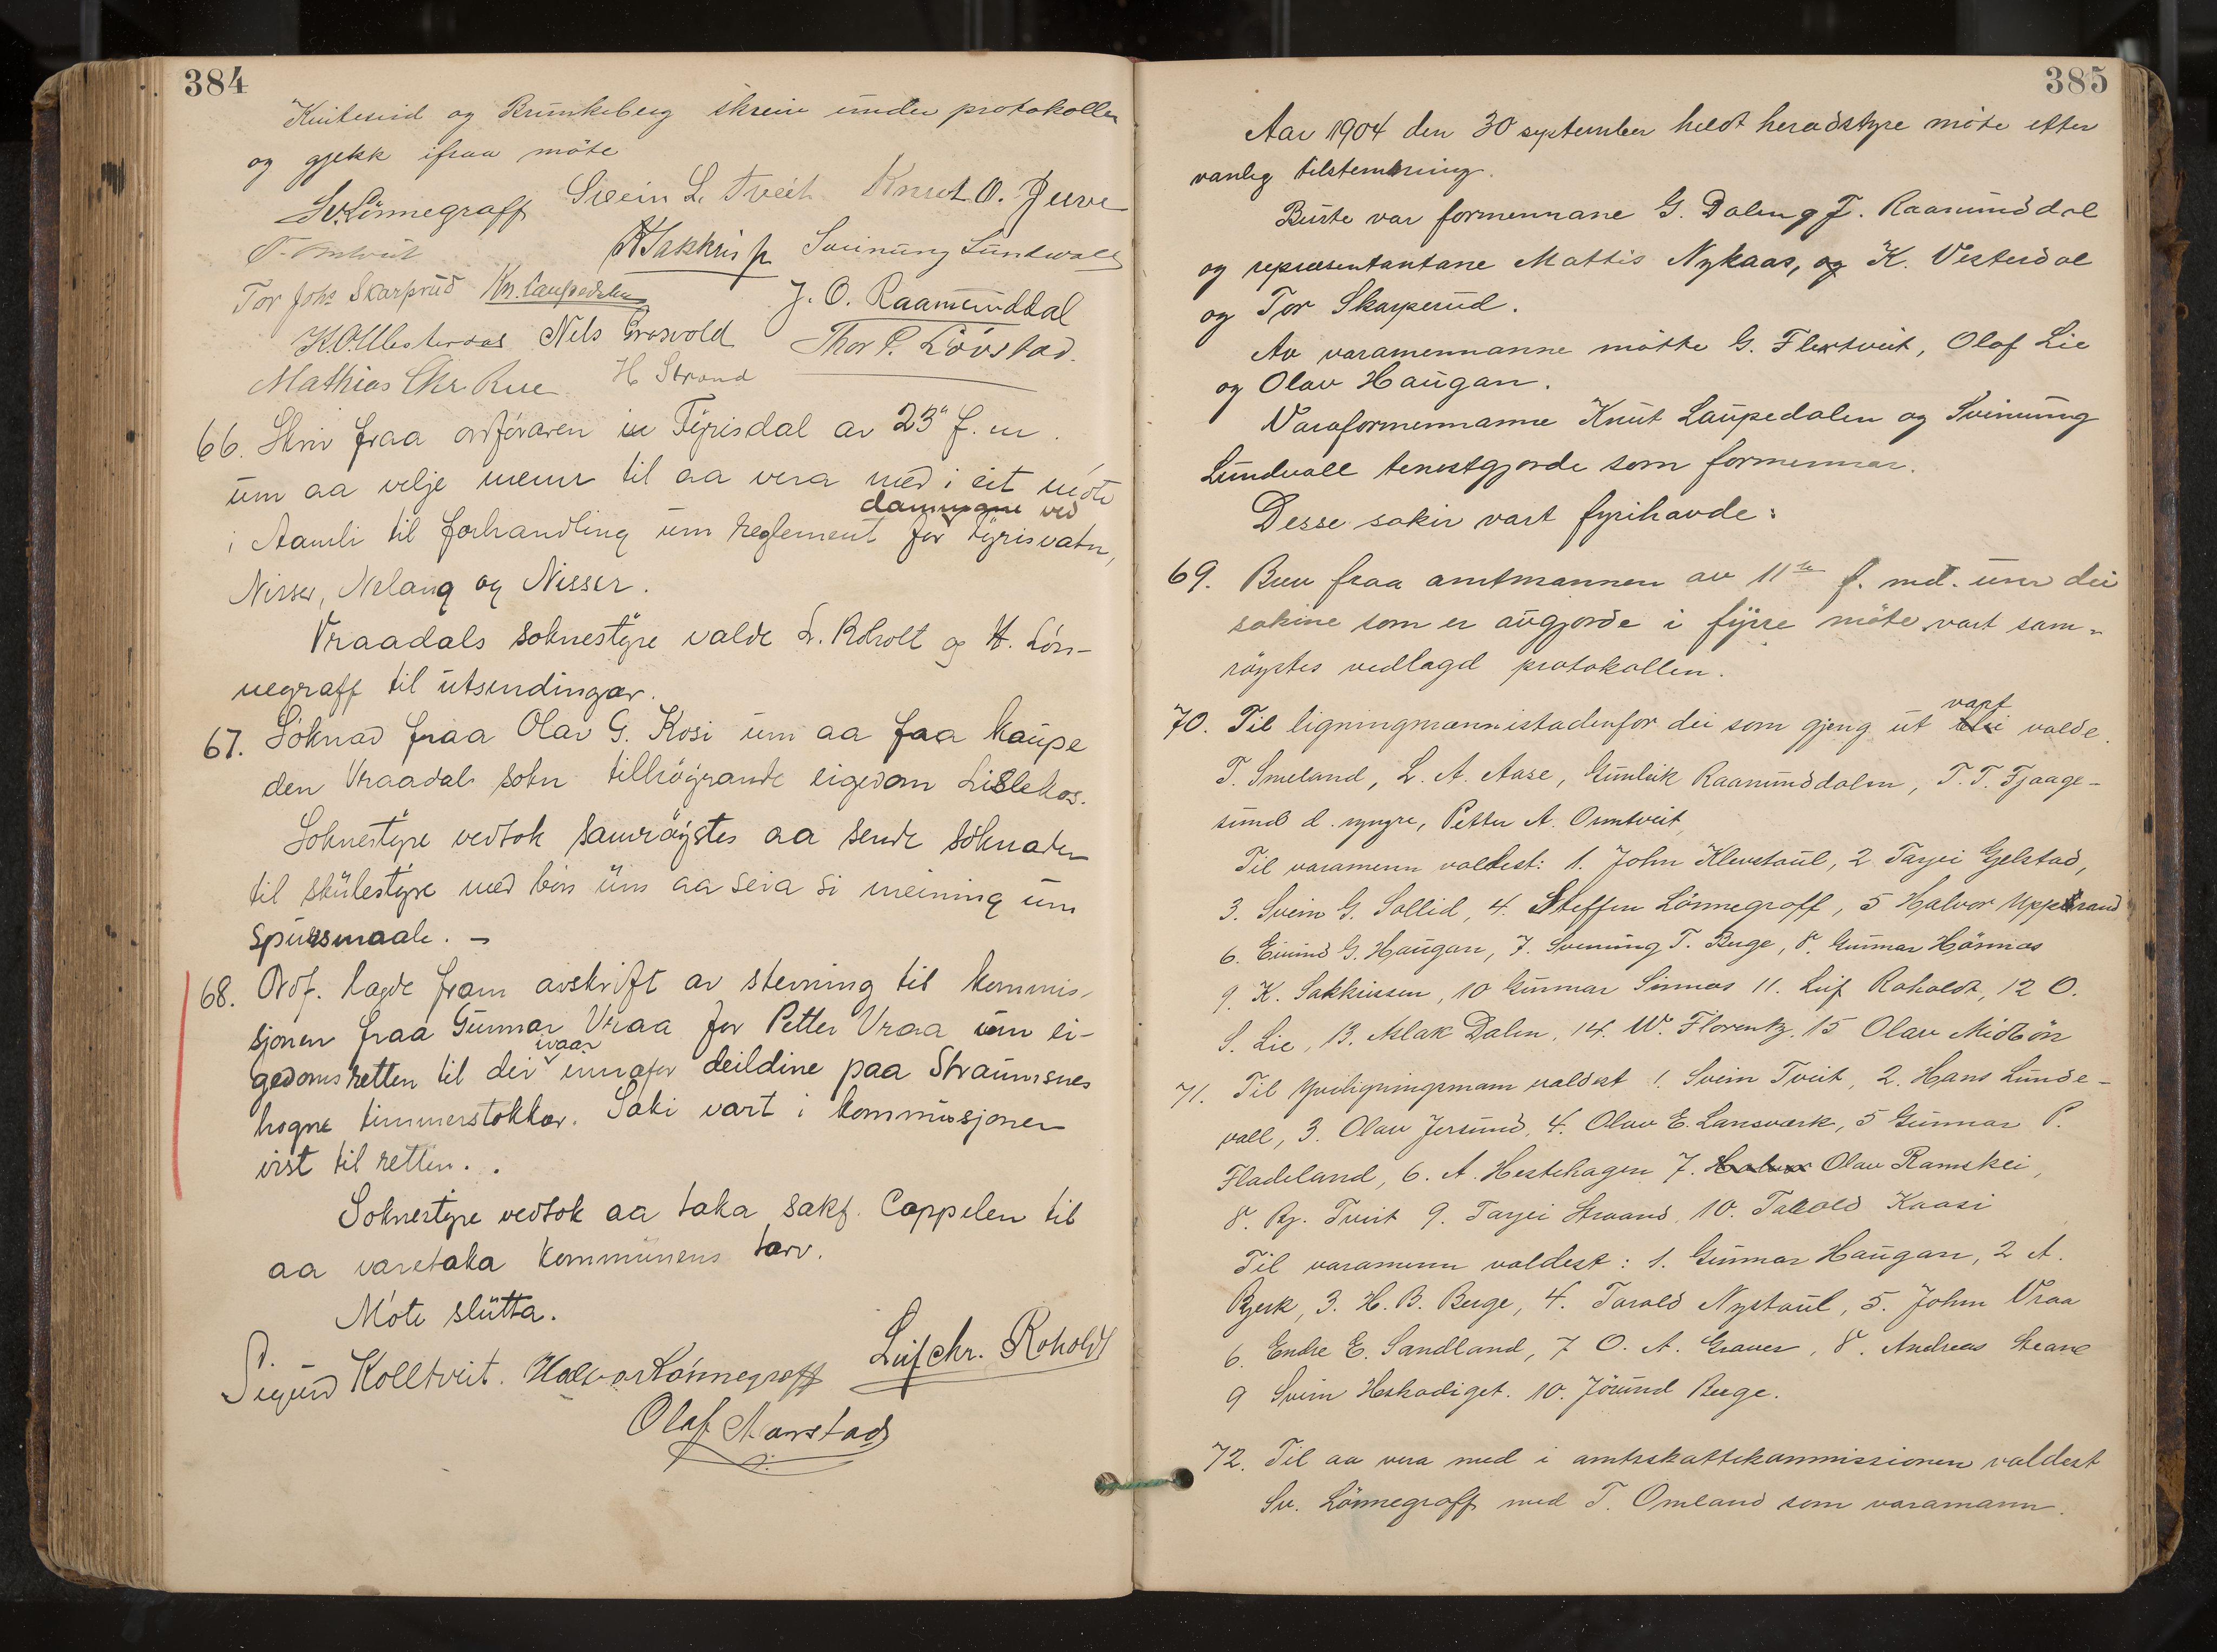 384
Kviteseid og Brunkeberg skreiv under protokollen
og gjekk ifraa møte
Sv. Lönnegraff Svein L. Tveit Knut O. Juve
T. Omtveit K Sakkris p. Sveinung Lundevall
Tor Johs Skarprud Kn. Laupedalen J. O. Raamunddal
K.O. Vesterdal Nels Grosvold Thor P. Lövstad.
Mathias Chr. Rue H Strand
66. Skriv fraa ordföraren in Tyrisdal av 23" f. m.
um aa velje menn til aa vera med i eit møte
dammane ved
i Aamli til forhandling um reglement for Tyrisvatn,
Nisser, Nelaug og Nisser.
Vraadals soknestyre valde L. Roholt og H. Lön-
negraff til utsendingar.
67. Söknad fraa Olav G. Kosi um aa faa kaupe
den Vraadals sokn tilhöyrande eigedom Lislekos.
Soknestyre vedtok samröystes aa sende söknaden
til skulestyre med bön um aa seia si meining um
spursmaale. –
68. Ordf. lagde fram avskrift av stevning til kommis-
sjonen fraa Gunnar Vraa for Petter Vraa um ei-
gedomsretten til dei innafor deildine paa Straumsnes
hogne timmerstokkar. Saki vart i kommissjonen
vist til retten. .
Soknestyre vedtok aa taka sakf. Cappelen til
aa varetaka kommunens tarv.
Møte slutta.
Sigurd Kolltveit. Halvor Lönnegraff Leif Chr. Roholdt
Olaf Naerstad
385
Aar 1904 den 30 september heldt heradstyre møte etter
vanleg tilstemning.
Burte var formennane G. Dalen og J. Raamunddal
og representantane Mattis Nykaas, og K. Vesterdal
og Tor Skarperud.
Av varamennanne møtte G. Flextveit, Olaf Lie
og Olav Haugan.
Varaformennanne Knut Laupedalen og Sveinung
Lundevall tenestgjorde som formennar.
Desse sakir vart fyrihavde:
69. Brev fraa amtmannen av 11te f. md. um dei
sakine som er avgjorde i fyrre møte vart sam-
röystes vedlagd protokollen.
vart
70. Til ligningsmenn istadenfor dei som gjeng ut blei valde
T. Smeland, L. A. Aase, Gunleik Raamunddalen, T. T. Fjaage-
sund d. yngre, Petter A. Omtveit
Til varamenn valdest: 1. John Klevstaul, 2 Tarjei Gjelstad,
3. Svein G. Sollid, 4. Steffen Lönnegraff, 5 Halvor Uppstrand
6. Eivind G. Haugan, 7. Sveinung T. Berge, 8. Gunnar Hörnæs
9. K. Sakkrissen, 10 Gunnar Sinnæs 11. Leif Roholdt, 12 O.
S. Lie, 13. Aslak Dalen, 14. W. Florentz. 15 Olav Midbön
71. Til yviligningsmenn valdest 1. Svein Tveit, 2. Hans Lunde-
vall, 3. Olav Jersund, 4. Olav E. Lansværk, 5 Gunnar P.
Fladeland, 6. A. Hestehagen 7. Halvor Olav Ramskei,
8. Bj. Tveit 9. Tarjei Straand, 10. Tarald Kaasi
Til varamenn valdest: 1. Gunnar Haugan, 2 A.
Bjerk, 3. H. B. Berge, 4. Tarald Nystaul, 5. John Vraa
6. Endre E. Sandland, 7 O. A. Graver, 8. Andreas Strand
9 Svein Heskadiget. 10. Jörund Berge.
72. Til aa vera med i amtsskattekommissionen valdest
Sv. Lönnegraff med T. Omland som varamann.